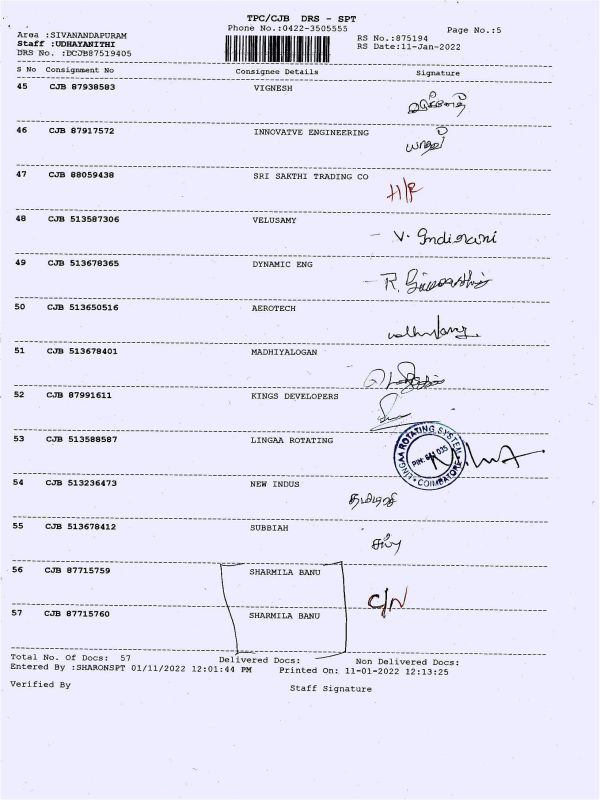 TPC/CJB DRS - SPT
Phone No.:0422-3505555
Page No.:5
Area :SIVANANDAPURAM
Staff :UDHAYANITHI
DRS No. :DCJB87519405
RS No.:875194
RS Date:11-Jan-2022
S No Consignment No Consignee Details Signature
45 CJB 87938583 VIGNESH
46 CJB 87917572 INNOVATVE ENGINEERING
47 CJB 88059438 SRI SAKTHI TRADING CO
48 CJB 513587306 VELUSAMY V.
49 CJB 513678365 DYNAMIC ENG R.
50 CJB 513650516 AEROTECH
51 CJB 513678401 MADHIYALOGAN
52 CJB 87991611 KINGS DEVELOPERS
53 CJB 513588587 LINGAA ROTATING
LINGAA ROTATING SYSTEM
COIMBATORE
54 CJB 513236473 NEW INDUS
55 CJB 513678412 SUBBIAH
56 CJB 87715759 SHARMILA BANU
C/N
57 CJB 87715760 SHARMILA BANU
Total No. Of Docs: 57 Delivered Docs: Non Delivered Docs:
Entered By :SHARONSPT 01/11/2022 12:01:44 PM Printed On: 11-01-2022 12:13:25
Verified By Staff Signature